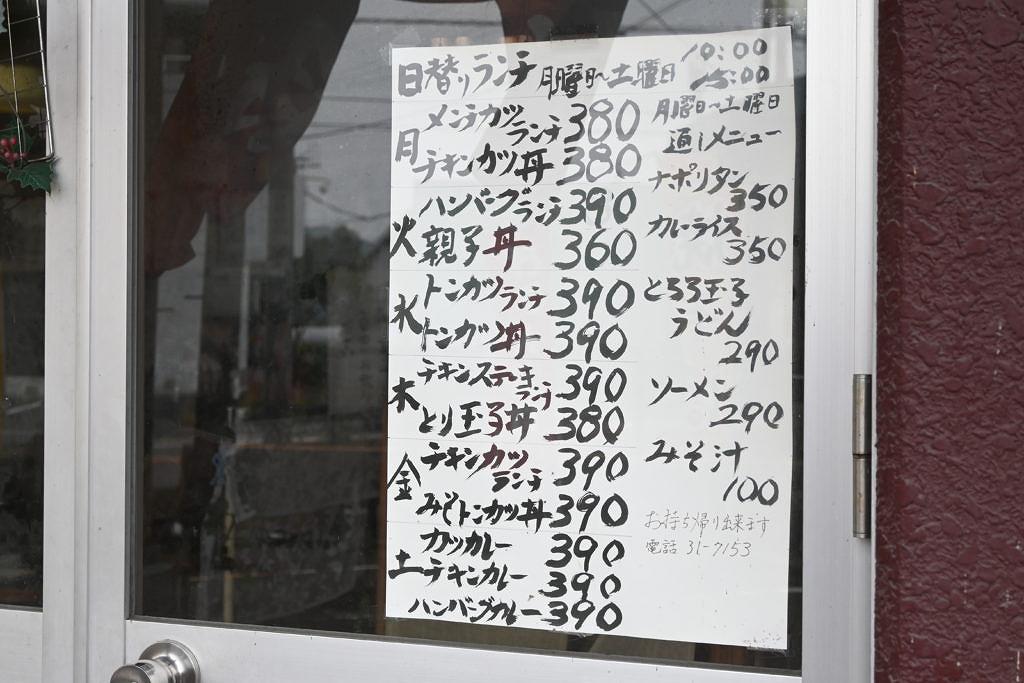 日替りランチ 月曜日〜土曜日 10:00 15:00
月
メンチカツランチ 380
チキンカツ丼 380
火
ハンバーグランチ 390
親子丼 360
水
トンカツランチ 390
トンカツ丼 390
木
チキンステーキランチ 390
とり玉子丼 380
金
チキンカツランチ 390
みそトンカツ丼 390
土
カツカレー 390
チキンカレー 390
ハンバーグカレー 390
月曜日〜土曜日
通しメニュー
ナポリタン
350
カレーライス
350
とろろ玉子
うどん
290
ソーメン
290
みそ汁
100
お持ち帰り出来ます
電話 31-7153